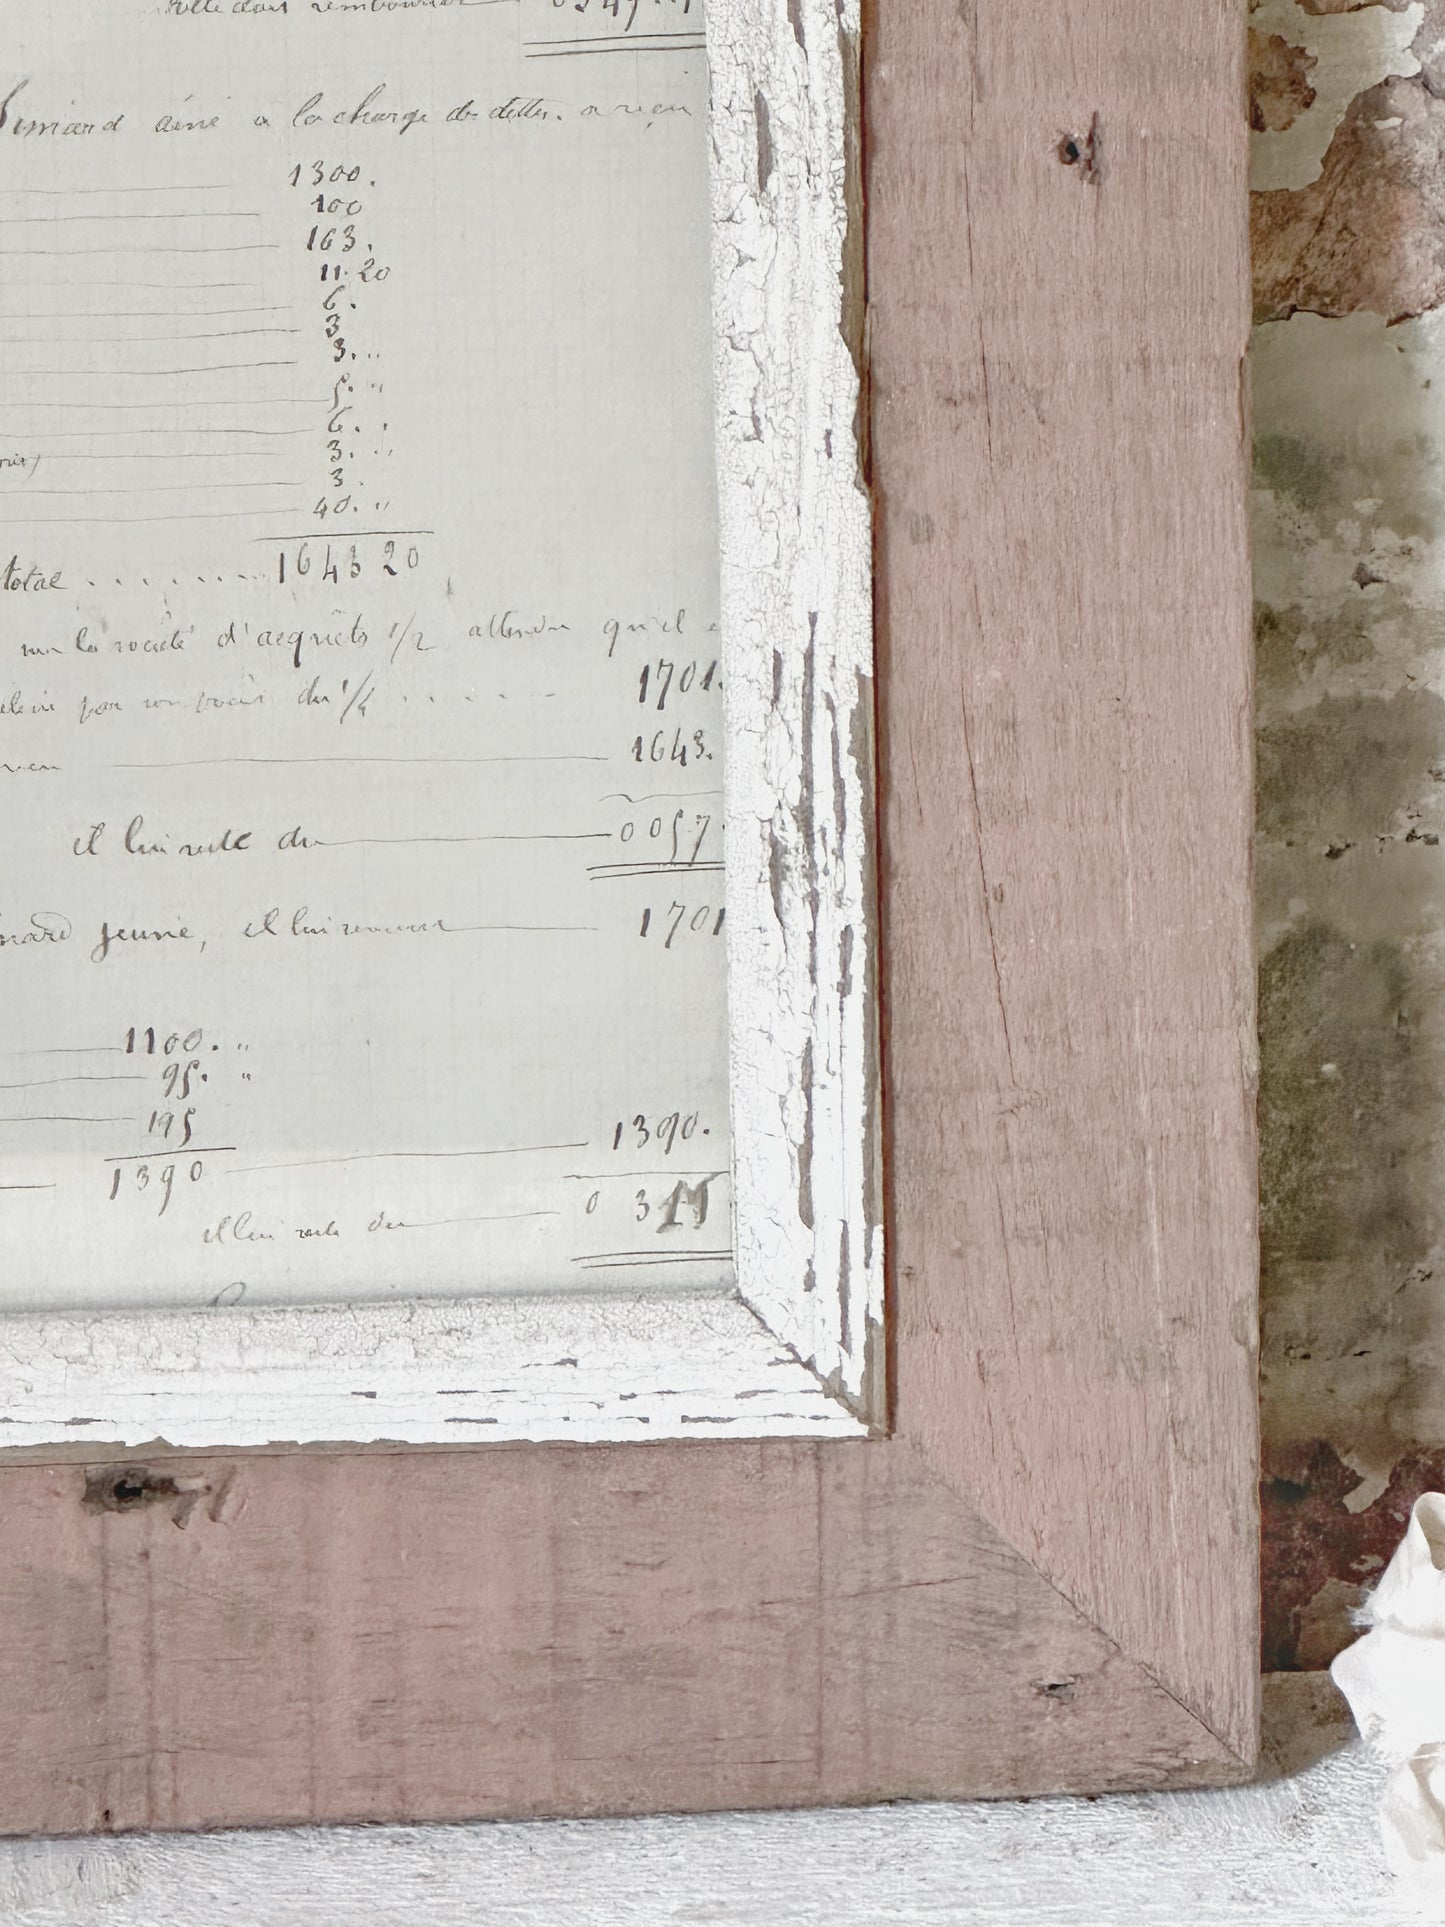 Simard ainé a la charge des dettes. a reçu
1300.
100
163.
11.20
6.
3
3. "
5. "
6. "
3. "
3.
40. "
total ........ 1643 20
sur la société d'acquêts 1/2 attendu qu'il
par son du 1/4 ......
1701.
1643.
il lui reste du 0057
jeune, il lui revient 1701
1100. "
95. "
195
1390.
1390
0 311
il lui reste du